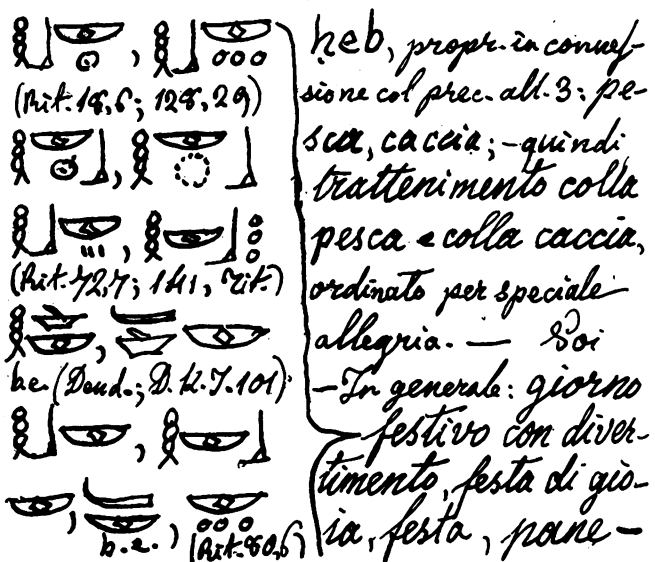 (Rit. 18,6; 128,29)
(Rit. 72,7; 141, Tit.)
b.e. (Dend.; D.K.I. 101).
b.e.) (Rit. 80,6)
ḥeb, propr. in connes-
sione col prec. all. 3: pe-
sca, caccia; - quindi
trattenimento colla
pesca e colla caccia,
ordinato per speciale
allegria. — Poi
- In generale: giorno
festivo con diver-
timento, festa di gio-
ia, festa, pane-